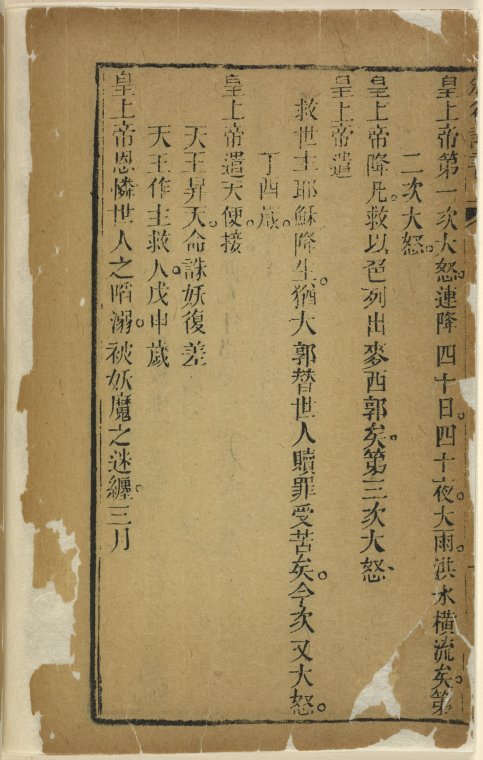 皇上帝第一次大怒。連降四十日。四十夜大雨。洪水橫流矣。第
二次大怒。
皇上帝降凡。救以色列出麥西郭矣。第三次大怒、
皇上帝遣
救世主耶穌降生。猶大郭替世人贖罪受苦矣。今次又大怒。
丁酉歲。
皇上帝遣天使接
天王昇天。命誅妖復差
天王作主救人。戊申歲
皇上帝恩憐世人之陷溺。被妖魔之迷纏。三月